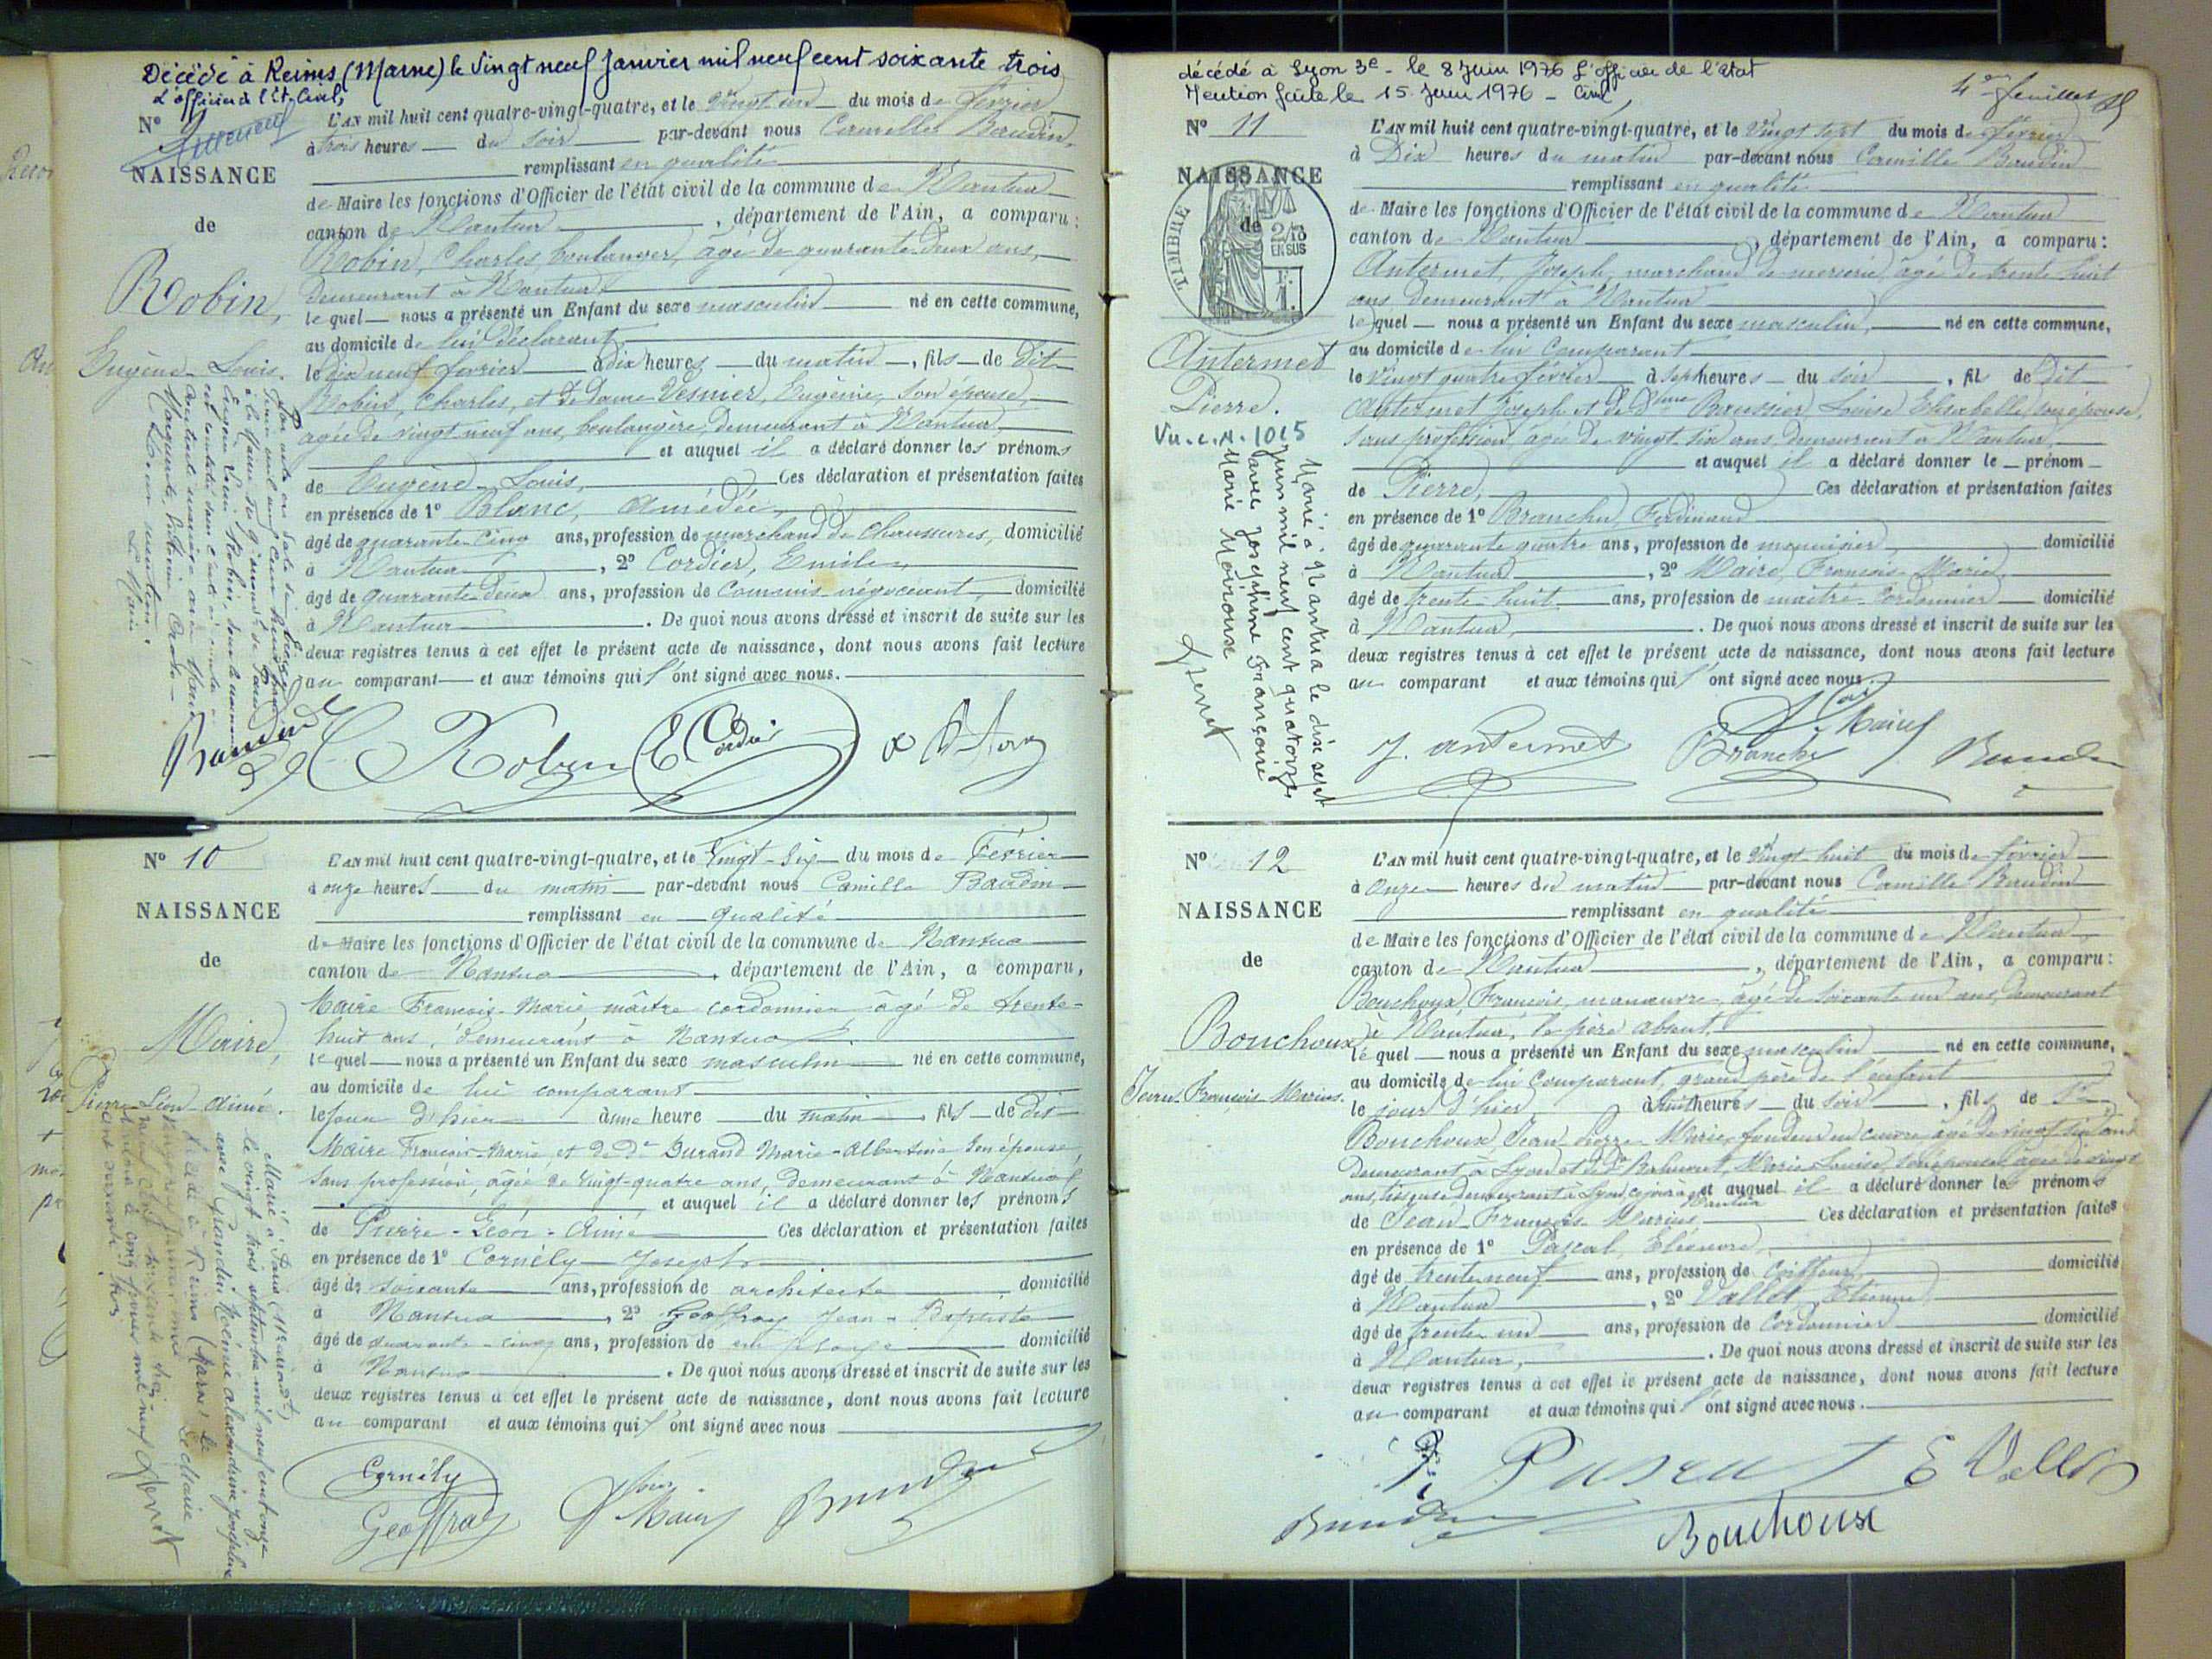 Décédé à Reims (Marne) le Vingt neuf Janvier mil neuf cent soixante trois
L'officier de l'Et. Civil,
N° 9
NAISSANCE
de
Robin,
Eugène-Louis.
L'AN mil huit cent quatre-vingt-quatre, et le vingt un du mois de février
à trois heures du soir par-devant nous Camille Baudin,
remplissant en qualité
de Maire les fonctions d'Officier de l'état civil de la commune de Nantua
canton de Nantua, département de l'Ain, a comparu :
Robin, Charles, boulanger, âgé de quarante-deux ans,
demeurant à Nantua
lequel nous a présenté un Enfant du sexe masculin né en cette commune,
au domicile de lui déclarant,
le dix neuf février à dix heures du matin, fils de dit
Robin, Charles, et de dame Vesnier, Eugénie, son épouse,
agée de vingt neuf ans, boulangère, demeurant à Nantua
et auquel il a déclaré donner les prénoms
de Eugène-Louis, Ces déclaration et présentation faites
en présence de 1° Blanc, Amédée,
âgé de quarante-cinq ans, profession de marchand de chaussures, domicilié
à Nantua, 2° Cordier, Emile,
âgé de quarante-deux ans, profession de Commis négociant, domicilié
à Nantua. De quoi nous avons dressé et inscrit de suite sur les
deux registres tenus à cet effet le présent acte de naissance, dont nous avons fait lecture
au comparant et aux témoins qui l'ont signé avec nous.
Baudin
C Robin
E Cordier
N° 10
NAISSANCE
de
Maire,
Pierre-Léon-Aimé.
L'AN mil huit cent quatre-vingt-quatre, et le Vingt-Six du mois de Février
à onze heures du matin par-devant nous Camille Baudin
remplissant en qualité
de Maire les fonctions d'Officier de l'état civil de la commune de Nantua
canton de Nantua, département de l'Ain, a comparu,
Maire François-Marie, maître cordonnier âgé de trente-
huit ans, demeurant à Nantua
lequel nous a présenté un Enfant du sexe masculin né en cette commune,
au domicile de lui comparant
le jour d'hier à une heure du matin, fils de dit
Maire François-Marie, et de De Durand Marie-Albertine son épouse,
sans profession, âgée de vingt-quatre ans, demeurant à Nantua
et auquel il a déclaré donner les prénoms
de Pierre-Léon-Aimé Ces déclaration et présentation faites
en présence de 1° Cornély Joseph
âgé de soixante ans, profession de architecte domicilié
à Nantua, 2° Geoffray Jean-Baptiste
âgé de quarante-cinq ans, profession de domicilié
à Nantua. De quoi nous avons dressé et inscrit de suite sur les
deux registres tenus à cet effet le présent acte de naissance, dont nous avons fait lecture
au comparant et aux témoins qui l'ont signé avec nous
Marié à Paris
le vingt trois septembre mil neuf cent onze
avec Grandin Noémie Alexandrine Joséphine
Le Maire
Décédé à Reims (Marne) le
vingt neuf janvier mil
neuf cent soixante trois
Cornély
Geoffray
Maire
Baudin
décédé à Lyon 3e - le 8 Juin 1976 L'officier de l'état
Mention faite le 15 Juin 1976 - Civil
4e feuillet
N° 11
NAISSANCE
de
TIMBRE
2/10 EN SUS
Antermet
Pierre.
Vu. c. N. 1015
Marié à Nantua le dix sept
juin mil neuf cent quatorze
avec Joséphine Françoise
Marie Moirouse
L'AN mil huit cent quatre-vingt-quatre, et le Vingt sept du mois de février
à Dix heures du matin par-devant nous Camille Baudin
remplissant en qualité
de Maire les fonctions d'Officier de l'état civil de la commune de Nantua
canton de Nantua, département de l'Ain, a comparu :
Antermet, Joseph, marchand de mercerie, âgé de trente huit
ans, demeurant à Nantua
lequel nous a présenté un Enfant du sexe masculin, né en cette commune,
au domicile de lui Comparant
le vingt quatre février à sept heures du soir, fils de Dit
Antermet Joseph et de Dame Baussier, Louise Elisabelle, son épouse,
sans profession, âgée de vingt six ans, demeurant à Nantua,
et auquel il a déclaré donner le prénom
de Pierre, Ces déclaration et présentation faites
en présence de 1° Branche, Ferdinand
âgé de quarante quatre ans, profession de menuisier, domicilié
à Nantua, 2° Maire, François-Marie,
âgé de trente-huit ans, profession de maître-Cordonnier domicilié
à Nantua, De quoi nous avons dressé et inscrit de suite sur les
deux registres tenus à cet effet le présent acte de naissance, dont nous avons fait lecture
au comparant et aux témoins qui l'ont signé avec nous.
J. Antermet
Branche
Maire
Baudin
N° 12
NAISSANCE
de
Bouchoux
Jean-François-Marius.
L'AN mil huit cent quatre-vingt-quatre, et le Vingt huit du mois de février
à Onze heures du matin par-devant nous Camille Baudin
remplissant en qualité
de Maire les fonctions d'Officier de l'état civil de la commune de Nantua
canton de Nantua, département de l'Ain, a comparu :
Bouchoux, François, manœuvre, âgé de soixante un ans, demeurant
à Nantua, le père absent.
lequel nous a présenté un Enfant du sexe masculin né en cette commune,
au domicile de lui Comparant, grand père de l'enfant
le jour d'hier, à huit heures du soir, fils de Sr
Bouchoux, Jean Pierre Marie, fondeur en cuivre, âgé de vingt six ans
demeurant à Lyon et de De Marie Louise, son épouse, âgée de vingt
ans, tisseuse demeurant à Lyon, et auquel il a déclaré donner les prénoms
de Jean-François-Marius, Ces déclaration et présentation faites
en présence de 1° Pascal, Eléonore,
âgé de trente neuf ans, profession de Coiffeur, domicilié
à Nantua, 2° Vallet, Etienne,
âgé de trente un ans, profession de Cordonnier domicilié
à Nantua, De quoi nous avons dressé et inscrit de suite sur les
deux registres tenus à cet effet le présent acte de naissance, dont nous avons fait lecture
au comparant et aux témoins qui l'ont signé avec nous.
Pascal
E Vallet
Baudin
Bouchoux